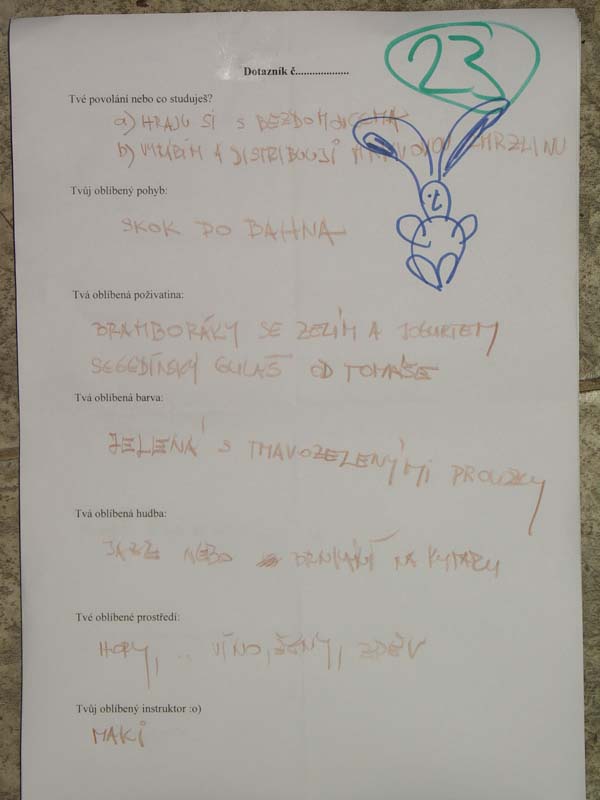 23
Dotazník č...................
Tvé povolání nebo co studuješ?
a) HRAJU SI S BEZDOMOVCEMA
b) VYRÁBÍM A DISTRIBUUJI ZMRZLINU
t
Tvůj oblíbený pohyb:
SKOK DO BAHNA
Tvá oblíbená poživatina:
BRAMBORÁKY SE ZELÍM A JOGURTEM
SEGEDÍNSKÝ GULÁŠ OD TOMÁŠE
Tvá oblíbená barva:
ZELENÁ S TMAVOZELENÝMI PROUŽKY
Tvá oblíbená hudba:
JAZZ NEBO BRNKÁNÍ NA KYTARU
Tvé oblíbené prostředí:
HORY, .. VÍNO, ŽENY, ZPĚV
Tvůj oblíbený instruktor :o)
MAKI